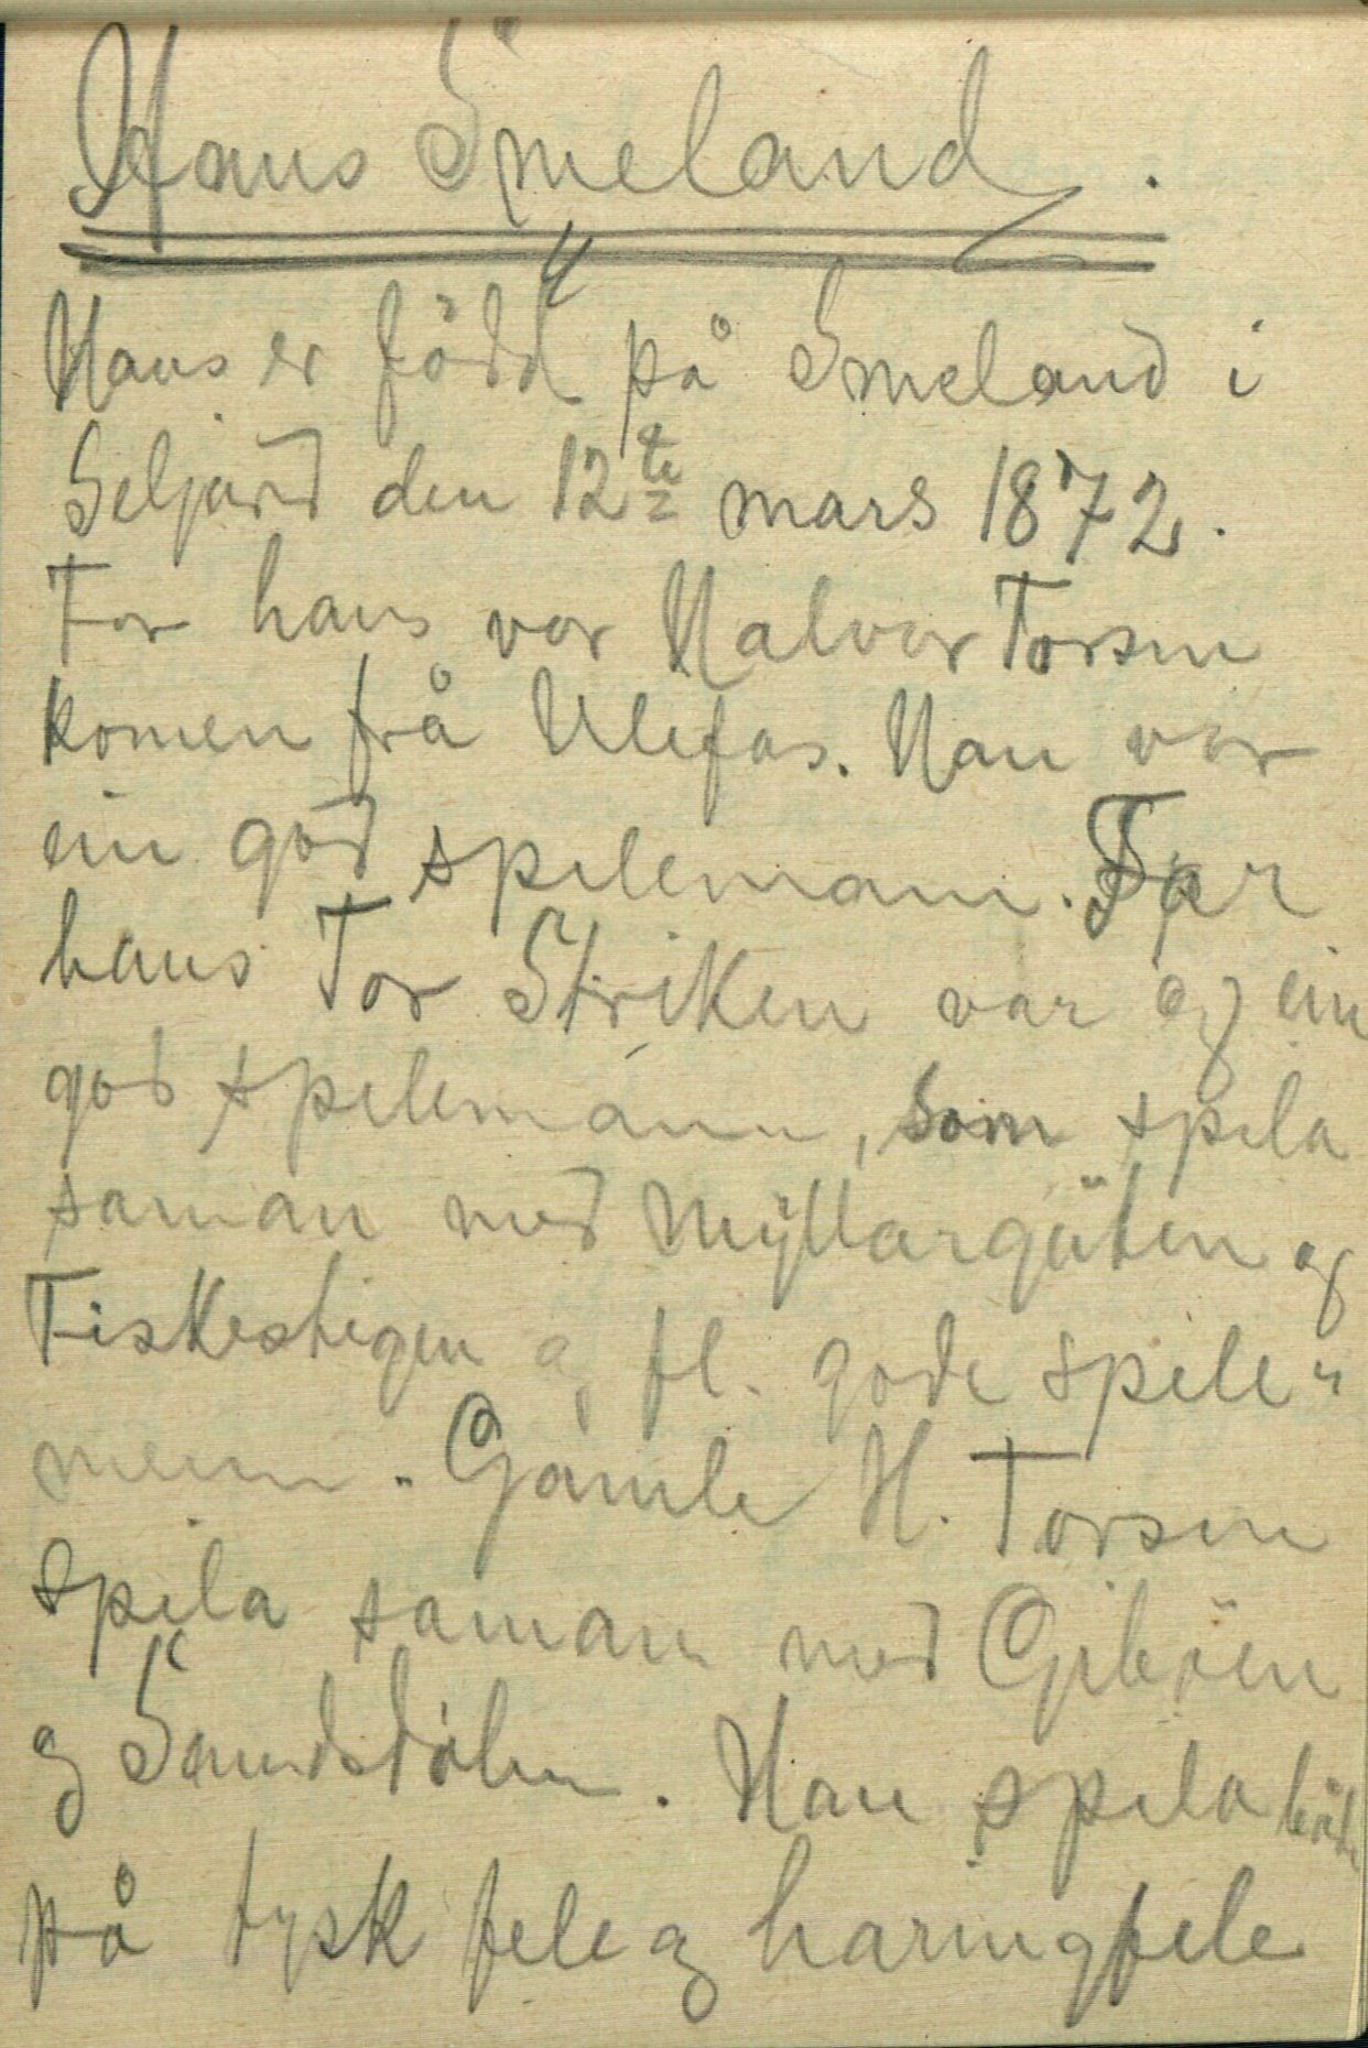 Hans Smeland.
Hans er född på Smeland i
Seljord den 12te mars 1872.
Far hans var Halvor Torsen
komen frå Ulefos. Han var
ein god spelemann. Far
hans Tor Striken var og ein
god spelemann, som spela
saman med Myllargüten og
Fiskestigen og fl. gode spele"
menn. Gamle H. Torsen
spela saman med Gibøen
og Sundstölen. Han spela både
på tysk fele og haringfele